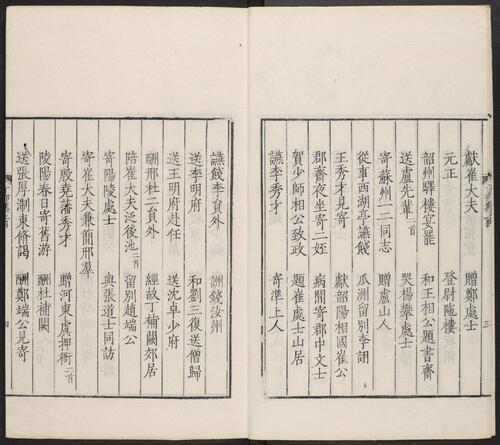 獻崔大夫 贈鄭處士
元正 登尉陁樓
韶州驛樓宴罷 和王相公題書齋
送盧先輩二首 哭楊攀處士
寄蘇州一二同志 贈盧山人
從事西湖亭讌餞 瓜洲留別李詡
王秀才見寄 獻韶陽相國崔公
郡齋夜坐寄二姪 病間寄郡中文士
賀少師相公致政 題崔處士山居
讌李秀才 寄準上人
三
讌餞李員外 詶錢汝州
送李明府 和劉三復送僧歸
送王明府赴任 送沈卓少府
酬邢杜二員外 經故丁補闕郊居
陪崔大夫泛後池二首 留別趙端公
寄陽陵處士 與張道士同訪
寄崔大夫兼簡邢羣
寄殷堯藩秀才 贈河東虞押衙二首
陵陽春日寄舊游 酬杜補闕
送張厚淛東脩謁 酬鄭端公見寄
四